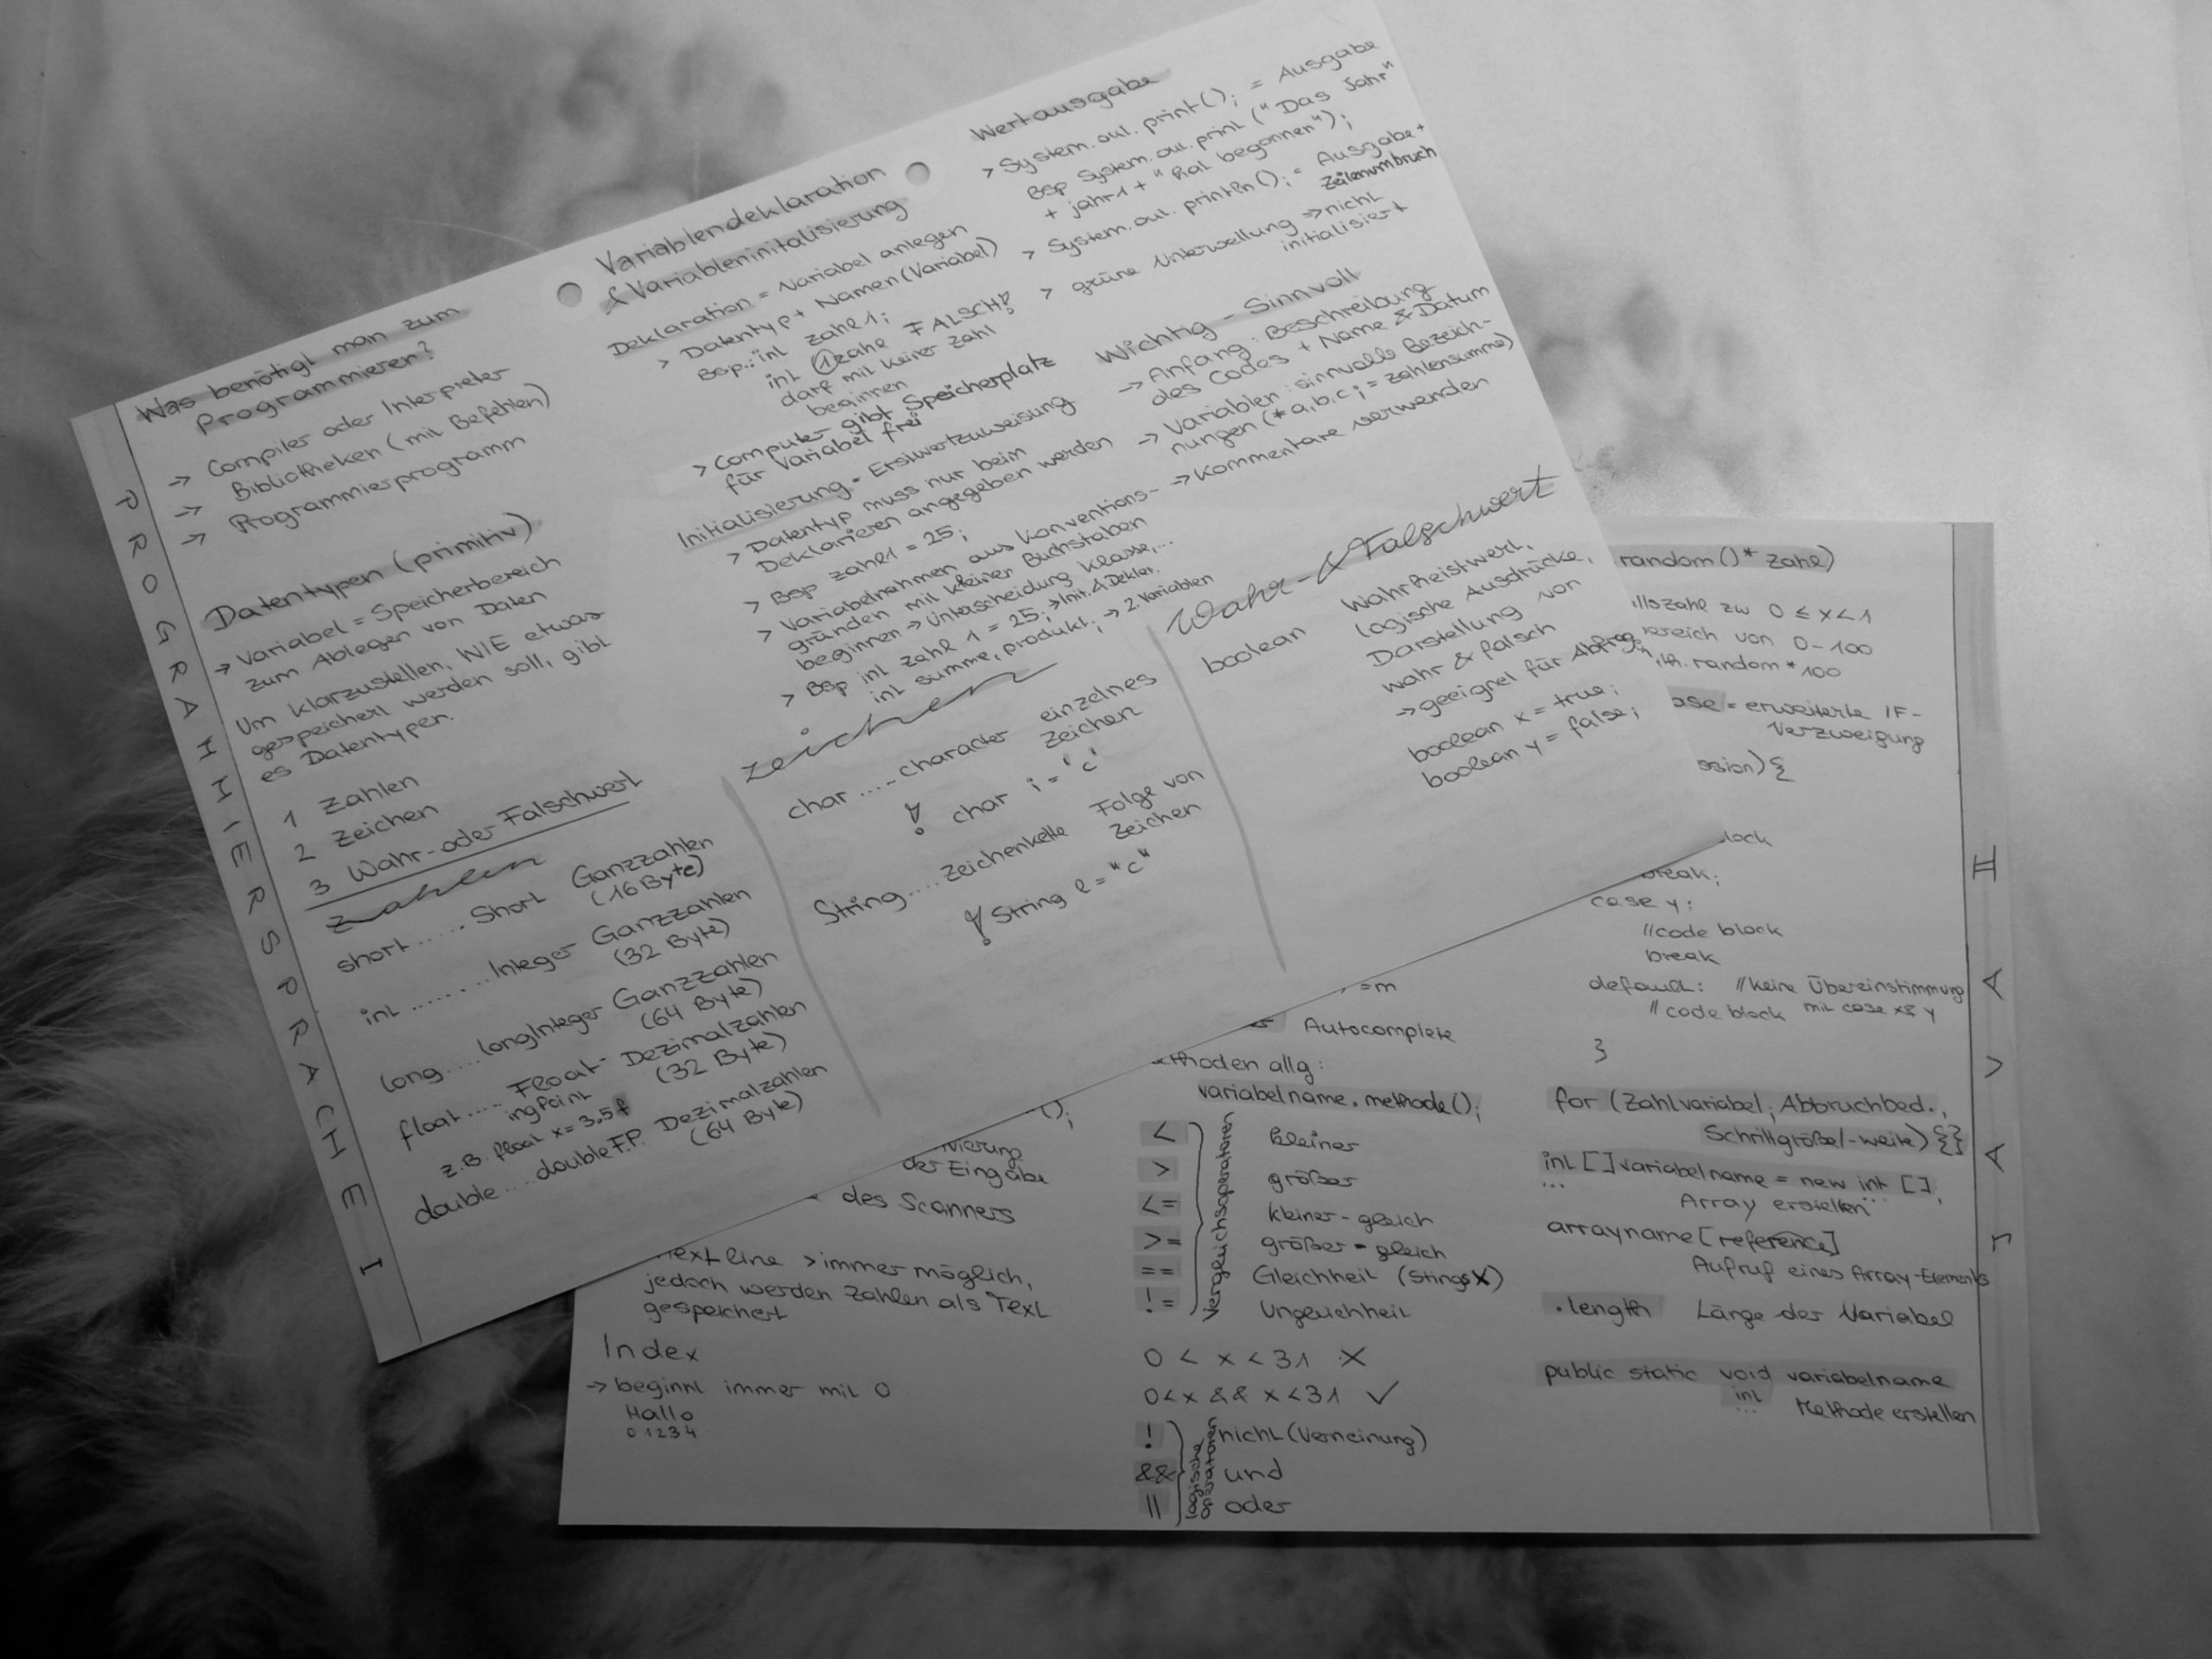 PROGRAMMIERSPRACHE I
Was benötigt man zum
Programmieren?
-> Compiler oder Interpreter
-> Bibliotheken (mit Befehlen)
-> Programmierprogramm
Datentypen (primitiv)
-> Variabel = Speicherbereich
zum Ablegen von Daten
Um klarzustellen, WIE etwas
gespeichert werden soll, gibt
es Datentypen.
1 Zahlen
2 Zeichen
3 Wahr- oder Falschwert
Zahlen
short..... Short Ganzzahlen
(16 Byte)
int ......... Integer Ganzzahlen
(32 Byte)
long..... longInteger Ganzzahlen
(64 Byte)
float..... Float- Dezimalzahlen
ingPoint (32 Byte)
z.B. float x = 3,5f
double... double F.P. Dezimalzahlen
(64 Byte)
Variablendeklaration
& Variableninitalisierung
Deklaration = Variabel anlegen
> Datentyp + Namen (Variabel)
Bsp.: int zahl1;
int 1zahl FALSCH!
darf mit keiner Zahl
beginnen
> Computer gibt Speicherplatz
für Variabel frei
Initialisierung = Erstwertzuweisung
> Datentyp muss nur beim
Deklarieren angegeben werden
> Bsp zahl1 = 25;
> Variabelnahmen aus Konventions-
gründen mit kleiner Buchstaben
beginnen -> Unterscheidung Klasse,...
> Bsp int zahl 1 = 25; -> Init. & Dekler.
int summe, produkt; -> 2. Variablen
Zeichen
char ..... character einzelnes
Zeichen
! char i = 'c'
String.... Zeichenkette Folge von
Zeichen
! String e = "c"
Wertausgabe
> System.out.print(); = Ausgabe
Bsp System.out.print ("Das Jahr"
+ jahr1 + " hat begonnen");
> System.out.println(); = Ausgabe +
Zeilenumbruch
> grüne Unterwellung => nicht
initialisiert
Wichtig - Sinnvoll
-> Anfang: Beschreibung
des Codes + Name & Datum
-> Variablen: sinnvolle Bezeich-
nungen (* a,b,c ; = zahlensumme)
-> Kommentare verwenden
Wahr- & Falschwert
boolean Wahrheistwert,
logische Ausdrücke,
Darstellung von
wahr & falsch
-> geeignet für Abfrage
boolean x = true;
boolean y = false;
();
der Eingabe
des Scanners
nextline > immer möglich,
jedoch werden Zahlen als Text
gespeichert
Index
-> beginnt immer mit 0
Hallo
0 1 2 3 4
, =m
Autocomplete
ethoden allg:
variabelname.methode();
Vergleichsoperatoren
< kleiner
> größer
<= kleiner-gleich
>= größer-gleich
== Gleichheit (Stings X)
!= Ungleichheit
0 < x < 31 X
0<x && x<31 ✓
logische Operatoren
! nicht (Verneinung)
&& und
|| oder
random()* Zahl)
llszahl zw 0 ≤ x < 1
ereich von 0-100
th.random * 100
ase = erweiterte IF-
Verzweigung
ssion) {
lock
break;
case y:
//code block
break
default: //keine Übereinstimmung
//code block mit case x & y
}
for (Zahlvariabel; Abbruchbed.,
Schrittgröße/-weite) {}
int [] variabelname = new int [];
... ...
Array erstellen
arrayname [reference]
Aufruf eines Array-Elements
.length Länge der Variabel
public static void variabelname
int
... Methode erstellen
JAVA II